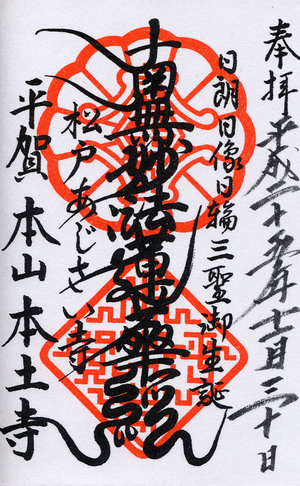 奉拝 平成二十五年十一月三十日
日朗日像日輪三聖御生誕
南無妙法蓮華経
松戸あじさい寺
平賀 本山本土寺